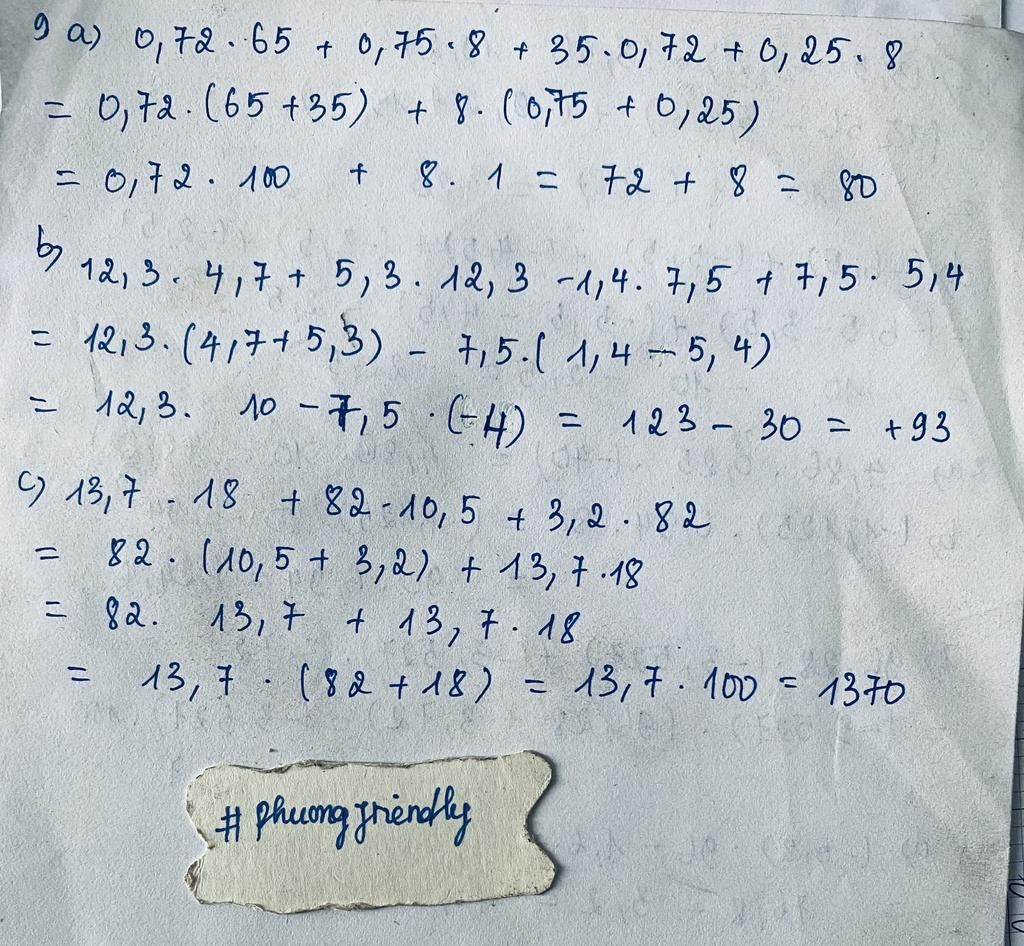 9 a) 0,72 . 65 + 0,75 . 8 + 35 . 0,72 + 0,25 . 8
= 0,72 . (65 + 35) + 8 . (0,75 + 0,25)
= 0,72 . 100 + 8 . 1 = 72 + 8 = 80
b) 12,3 . 4,7 + 5,3 . 12,3 - 1,4 . 7,5 + 7,5 . 5,4
= 12,3 . (4,7 + 5,3) - 7,5 . (1,4 - 5,4)
= 12,3 . 10 - 7,5 . (-4) = 123 - 30 = +93
c) 13,7 . 18 + 82 . 10,5 + 3,2 . 82
= 82 . (10,5 + 3,2) + 13,7 . 18
= 82 . 13,7 + 13,7 . 18
= 13,7 . (82 + 18) = 13,7 . 100 = 1370
# phuongfriendly